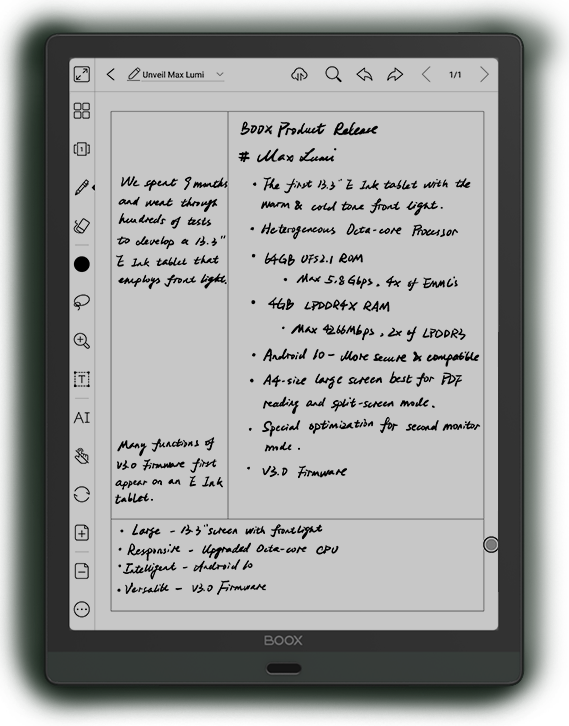 Unveil Max Lumi
1/1
BOOX Product Release
# Max Lumi
• The first 13.3" E Ink tablet with the
warm & cold tone front light.
• Heterogeneous Octa-core Processor
• 64GB UFS2.1 ROM
• Max 5.8Gbps, 4x of EMMC5
• 4GB LPDDR4X RAM
• Max 4266Mbps, 2x of LPDDR3
• Android 10 - More secure & compatible
• A4-size large screen best for PDF
reading and split-screen mode.
• Special optimization for second monitor
mode.
• V3.0 Firmware
We spent 9 months
and went through
hundreds of tests
to develop a 13.3"
E Ink tablet that
employs front light.
Many functions of
V3.0 Firmware first
appear on an E Ink
tablet.
• Large - 13.3" screen with frontlight
• Responsive - Upgraded Octa-core CPU
• Intelligent - Android 10
• Versatile - V3.0 Firmware
1
T
AI
BOOX